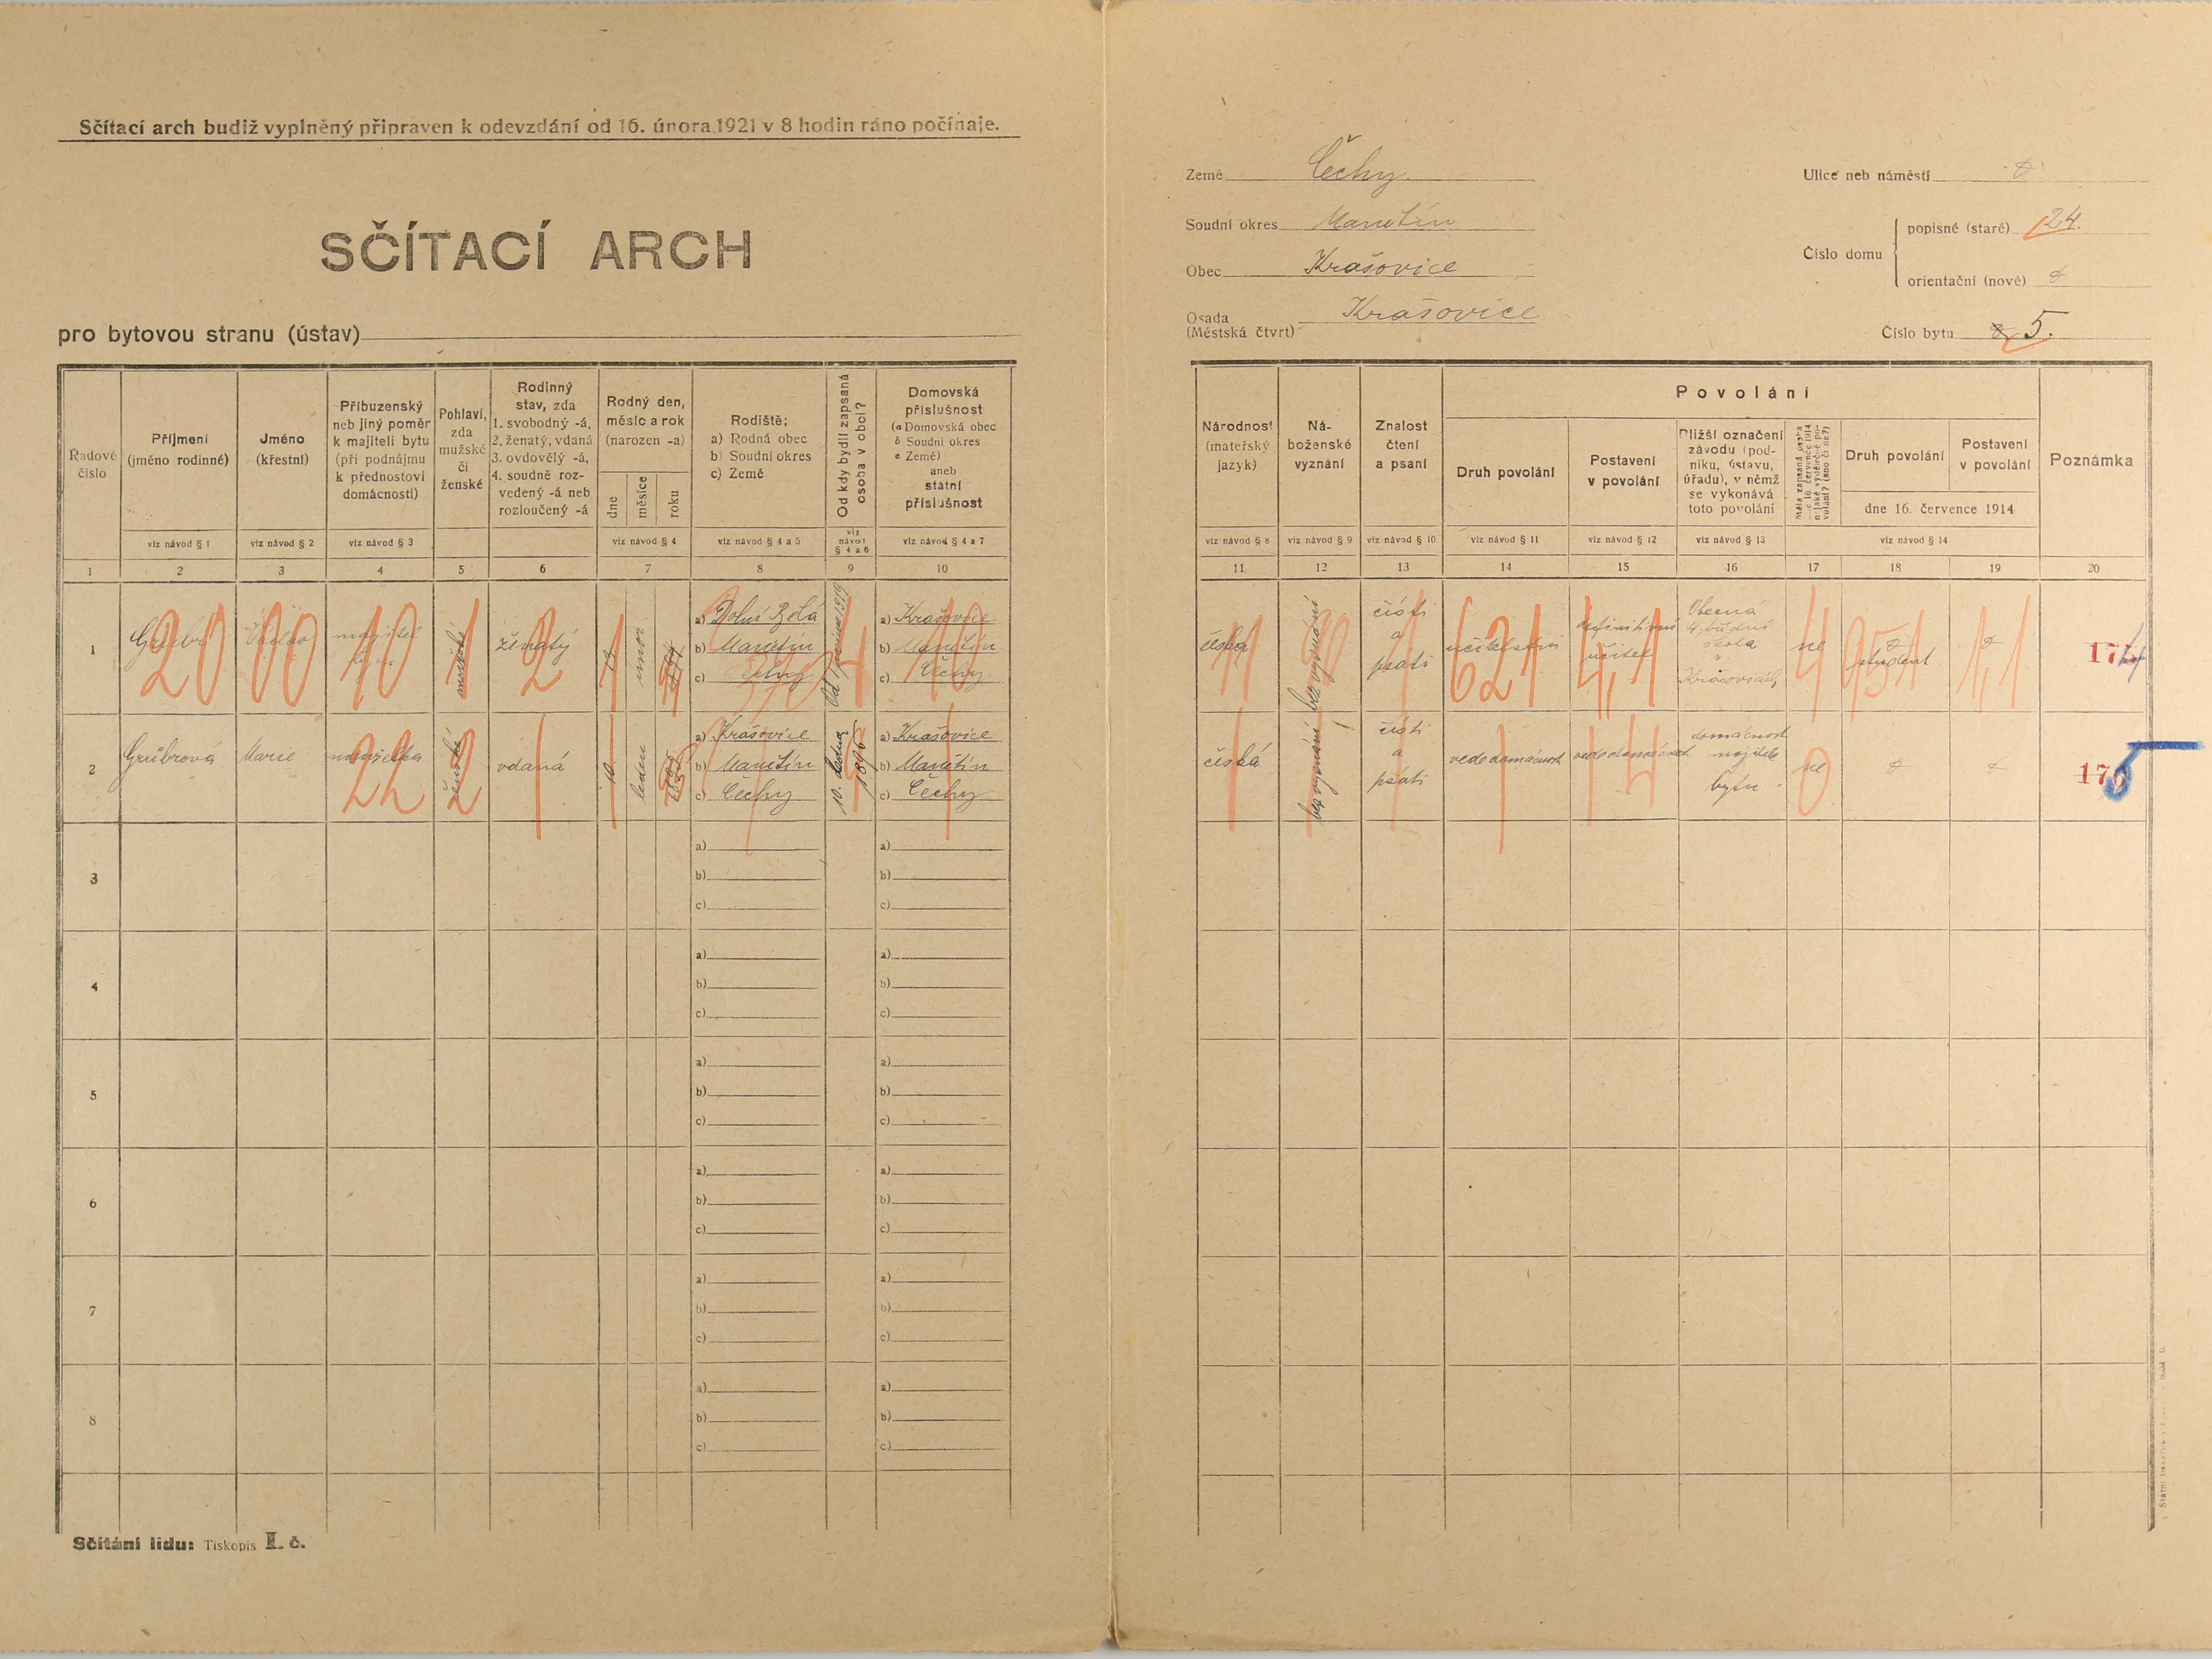 Sčítací arch budiž vyplněný připraven k odevzdání od 16. února 1921 v 8 hodin ráno počínaje.
SČÍTACÍ ARCH
pro bytovou stranu (ústav)
Země Čechy
Soudní okres Manětín
Obec Krašovice
Osada Krašovice
(Městská čtvrt)
Ulice neb náměstí
Číslo domu
popisné (staré) 24.
orientační (nové)
Číslo bytu 5.
Řadové číslo
Příjmení (jméno rodinné)
viz návod § 1
Jméno (křestní)
viz návod § 2
Příbuzenský neb jiný poměr k majiteli bytu (při podnájmu k přednostovi domácnosti)
viz návod § 3
Pohlaví, zda mužské či ženské
Rodinný stav, zda
1. svobodný -á,
2. ženatý, vdaná
3. ovdovělý -á,
4. soudně roz-
vedený -á neb
rozloučený -á
Rodný den, měsíc a rok (narozen -a)
dne měsíce roku
viz návod § 4
Rodiště:
a) Rodná obec
b) Soudní okres
c) Země
viz návod § 4 a 5
Od kdy bydlí zapsaná osoba v obci?
viz návod § 4 a 6
Domovská příslušnost
(a Domovská obec
b Soudní okres
c Země)
aneb státní příslušnost
viz návod § 4 a 7
1 2 3 4 5 6 7 8 9 10
Národnost (mateřský jazyk)
viz návod § 8
Ná-
boženské
vyznání
viz návod § 9
Znalost čtení a psaní
viz návod § 10
Povolání
Druh povolání
viz návod § 11
Postavení v povolání
viz návod § 12
Bližší označení
závodu (pod-
niku, ústavu,
úřadu), v němž
se vykonává
toto povolání
viz návod § 13
Měla zapsaná osoba
Druh povolání
Postavení v povolání
dne 16. července 1914
viz návod § 14
Poznámka
11 12 13 14 15 16 17 18 19 20
1
20 00 10 1 2
mužské
ženatý
únor
a) Dolní Bělá
b) Manětín
c) Čechy
a) Krašovice
b) Manětín
c) Čechy
česká
bez vyznání
čísti
a
psáti
učitelství
621
definitivní
učitel
Obecná
škola
v
Krašovicích
ne
4
951
student
2
Grübrová
Marie
manželka
22
ženské
2
vdaná
10.
leden
a) Krašovice
b) Manětín
c) Čechy
10. ledna
1896
a) Krašovice
b) Manětín
c) Čechy
česká
bez vyznání
čísti
a
psáti
vede domácnost
vede domácnost
domácnost
majitele
bytu
ne
0
3
a)
b)
c)
a)
b)
c)
4
a)
b)
c)
a)
b)
c)
5
a)
b)
c)
a)
b)
c)
6
a)
b)
c)
a)
b)
c)
7
a)
b)
c)
a)
b)
c)
8
a)
b)
c)
a)
b)
c)
Sčítání lidu: Tiskopis I. č.